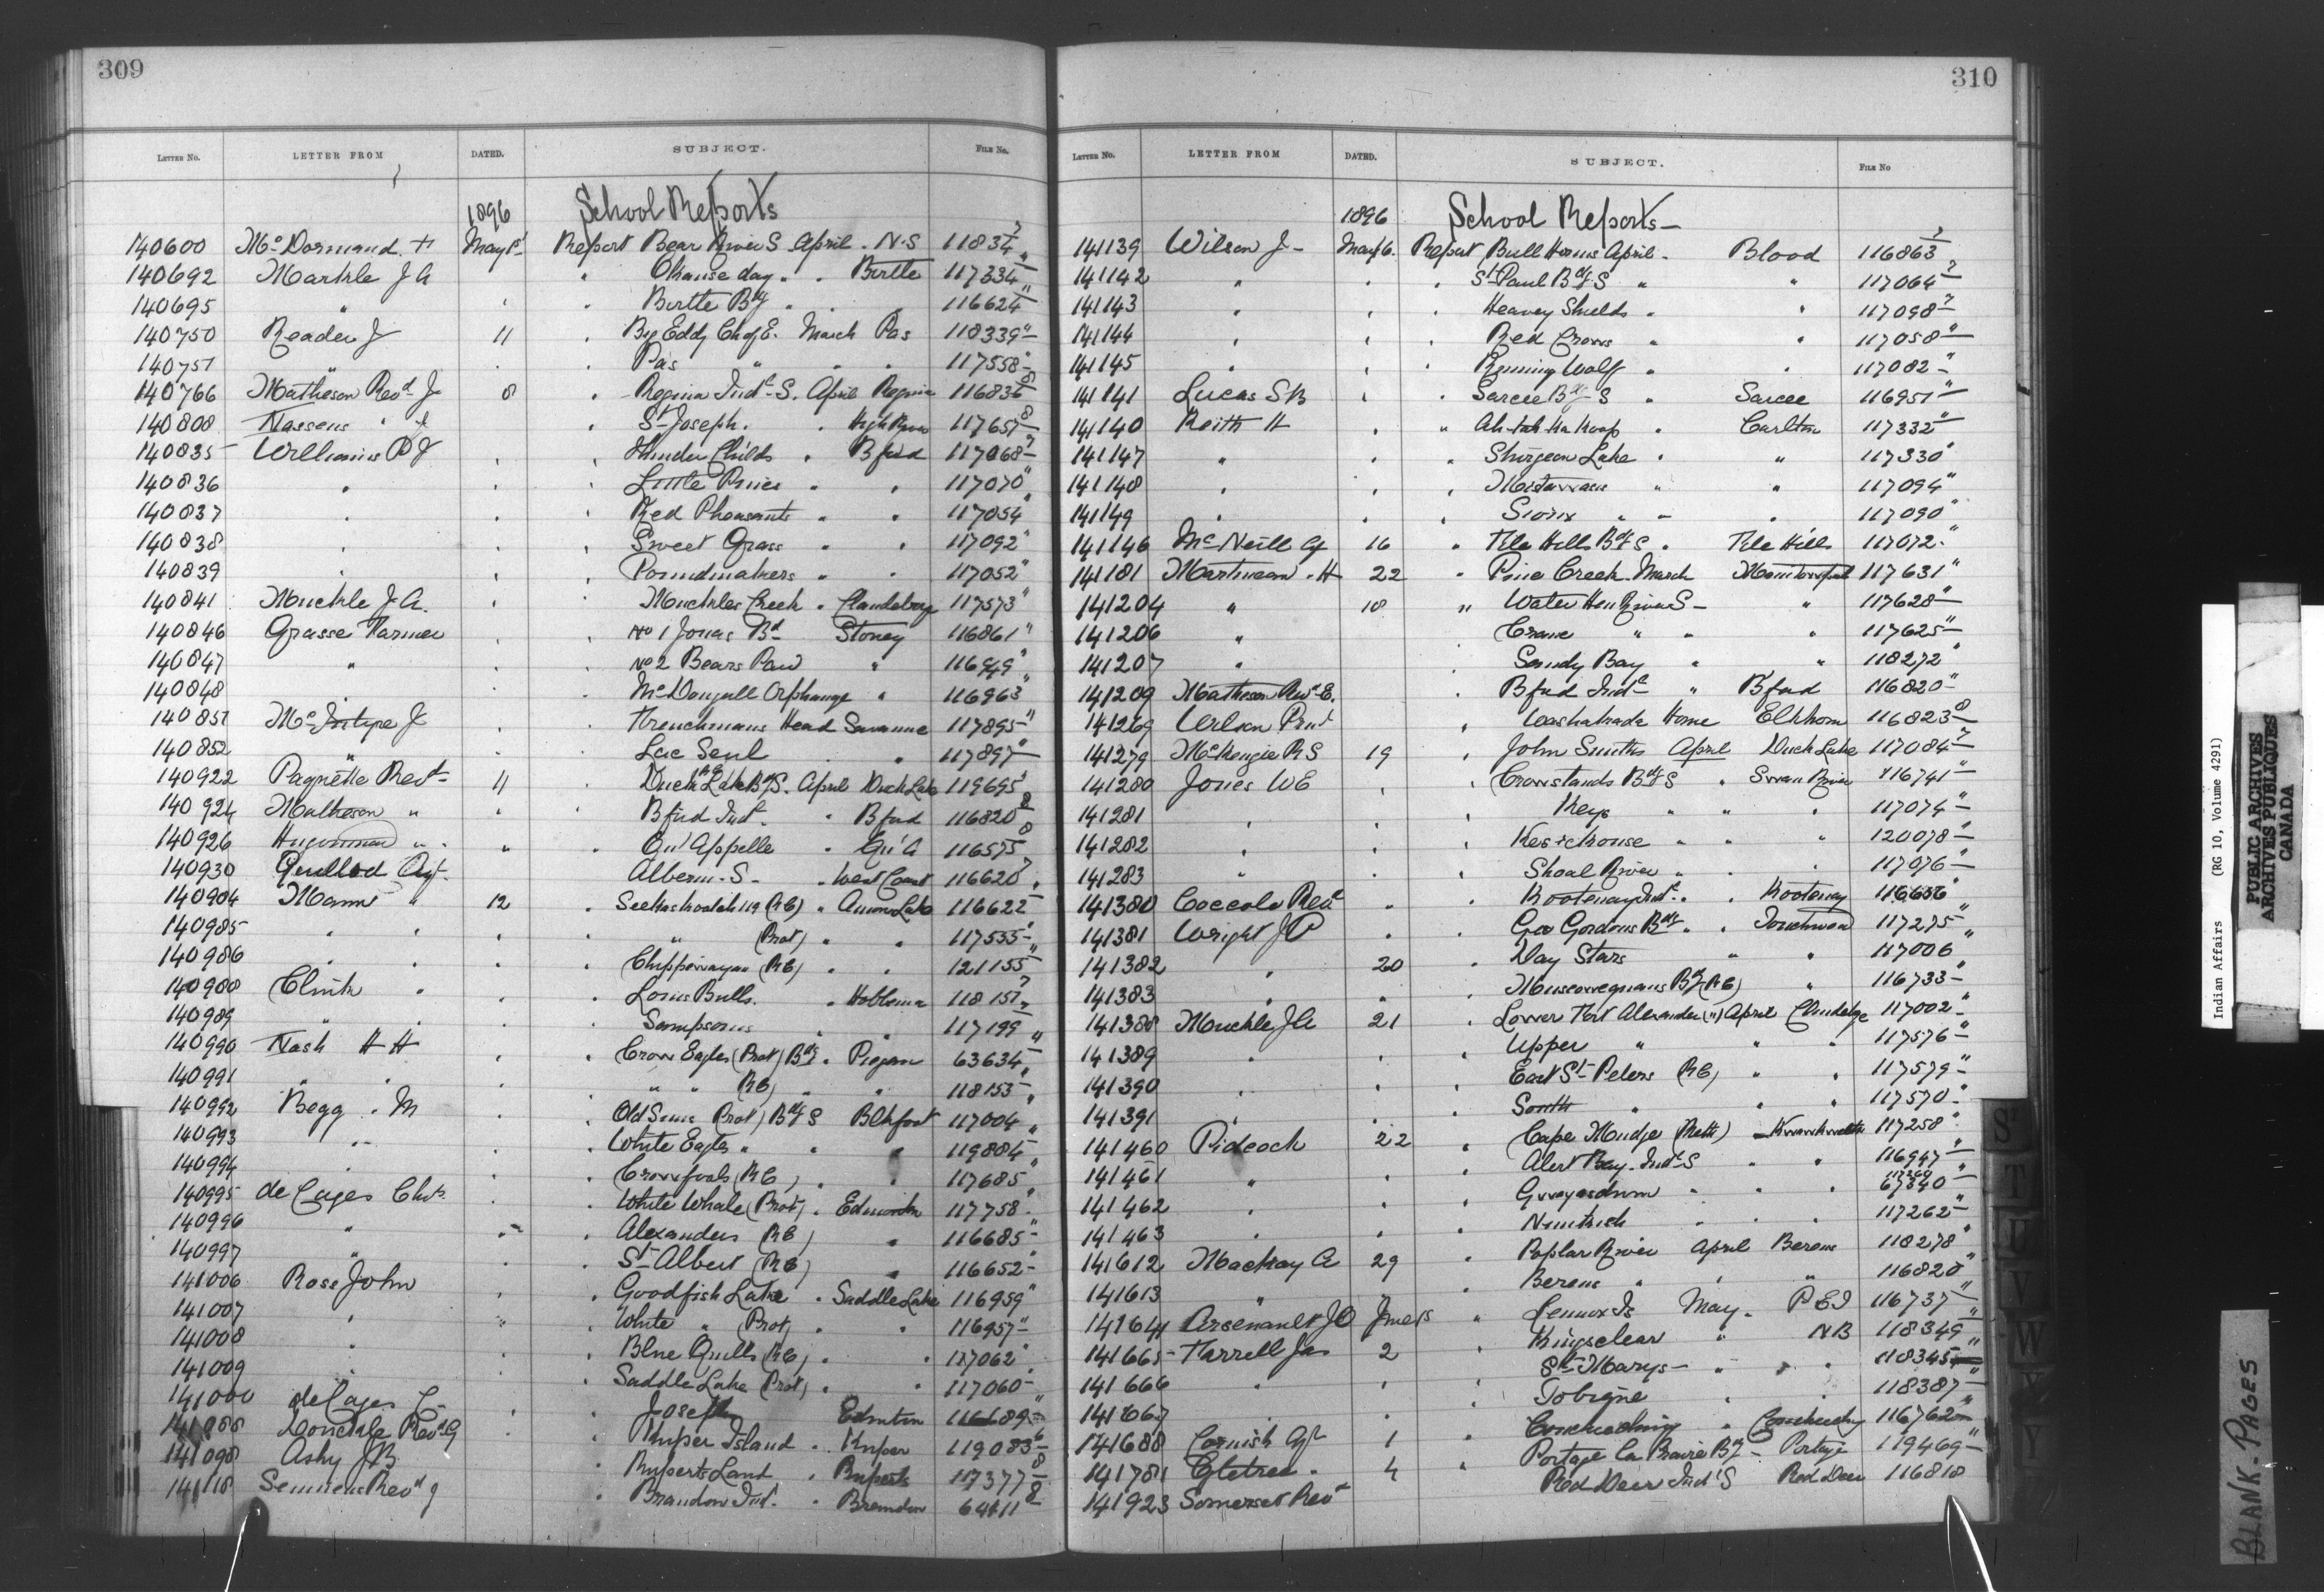 309
LETTER NO. LETTER FROM DATED. SUBJECT. FILE NO.
1896 School Reports
140600 McDormand May 1st Report Bear River S. April. N.S 11834
140692 Markle J A " Okanse day " " Birtle 117334
140695 " " Birtle Bdg " " 116624
140750 Reader J 11 " Big Eddy Ch of E. March Pas 118339
140751 " " Pas " " " 117558
140766 Matheson Revd J 8 " Regina Indl S. April Regina 116836
140808 Nassens " " St Joseph. " High River 117657
140835 Williams P J " " Thunder Childs " Bford 117068
140836 " " " Little Pines " " 117070
140837 " " " Red Pheasants " " 117054
140838 " " " Sweet Grass " " 117092
140839 " " " Poundmakers " " 117052
140841 Muckle J A. " " Muckles Creek " Clandeboye 117573
140846 Grasse Farmer " " No 1 Jonas Bd Stoney 116861
140847 " " " No 2 Bears Paw " 116949
140848 " " McDougall Orphanage " 116963
140851 McIntyre J " " Frenchmans Head Savanne 117895
140852 " " " Lac Seul " " 117897
140922 Paquette Revd 11 " Duck Lake Bdg S. April Duck Lake 119695
140924 Matheson " " " Bford Indl " Bford 116820
140926 Hugonnard " " " Qu'Appelle " Qu'A 116575
140930 Guillod Agt. Alberni. S. " West Coast 116620
140984 Mann " 12 " Seekaskootch 119 (RC) " Onion Lake 116622
140985 " " " " " (Prot) " " 117555
140986 " " " " Chippewayan (RC) " " 121155
140988 Clink " " " Louis Bulls. " Hobbema 118151
140989 " " " " Sampsons " " 117199
140990 Nash H H " " Crow Eagles (Prot) Bdg " Piegan 63634
140991 " " " " " " RC) " " 118153
140992 Begg . M " " Old Suns Prot) Bdg S Blkfoot 117004
140993 " " " White Eagles " " " 119884
140994 " " " Crowfoots (RC) " " 117685
140995 de Cazes Chs. " " White Whale (Prot) " Edmonton 117758
140996 " " " Alexanders (RC) " 116685
140997 " " " St Albert (RC) " 116652
141006 Ross John " " Goodfish Lake " Saddle Lake 116959
141007 " " " White " (Prot) " " 116957
141008 " " " Blue Quills (RC) " " 117062
141009 " " " Saddle Lake (Prot) " " 117060
141000 de Cazes C " " Joseph Edmton 116689
141088 Donckele Revd G " " Kuper Island " Kuper 119083
141098 Ashy J B " " Ruperts Land " Ruperts 117377
141118 Semmens Revd J " Brandon Ind. " Brandon 64411
310
LETTER NO. LETTER FROM DATED. SUBJECT. FILE NO
1896 School Reports
141139 Wilson J May 16. Report Bull Horns April. Blood 116863
141142 " " " St Paul Bdg S " " 117064
141143 " " " Heavy Shields " " 117098
141144 " " " Red Crows " 117058
141145 " " " Running Wolf " " 117082
141141 Lucas S B " " Sarcee Bdg S " Sarcee 116951
141140 Keith H " " Ah-tah-ka koop " Carlton 117332
141147 " " " Sturgeon Lake " " 117330
141148 " " " Mistawasis " " 117094
141149 " " " Sioux " " " 117090
141146 McNeill Af 16 " File Hills Bdg S " File Hills 117072
141181 Martineau . H 22 " Pine Creek March 117631
141204 " 18 " Water Hen River S " 117628
141206 " " Crane " " " 117625
141207 " " Sandy Bay " " 118272
141209 Matheson Revd E. " Bford Indl " Bford 116820
141269 Wilson Prin " Washakada Home Elkhorn 116823
141279 McKenzie R S 19 " John Smiths April Duck Lake 117084
141280 Jones W E " " Crowstands Bdg S " Swan River 116741
141281 " " " Keys " " " 117074
141282 " " " Keeseekouse " " " 120078
141283 " " Shoal River " " 117076
141380 Coccola Revd " " Kootenay Indl " " Kootenay 116656
141381 Wright J P " " Geo Gordons Bdg " " Touchwood 117275
141382 " 20 " Day Stars " " 117006
141383 " " " Muscowequans Bdg (RC) " 116733
141388 Muckle J A 21 " Lower Fort Alexander (") April Clandebye 117002
141389 " " Upper " " " 117576
141390 " " " East St Peters (RC) " " 117579
141391 " " " South " " " 117570
141460 Pidcock 22 " Cape Mudge (Meth) 117258
141461 " " " Alert Bay. Indl S " " 116947
141462 " " " Gwayasdums " " " 117260 67340
141463 " " " Nimkish " " " 117262
141612 Mackay A 29 " Poplar River April Berens 118278
141613 " " Berens " " " 116820
141641 Arsenault J O June 15 " Lennox Is May. P E I 116737
141665 Farrell Jas 2 " Kingsclear " N B 118349
141666 " " " St Marys " " " 118345
141667 " " Tobique " 118387
141688 Cornish Af 1 " Couchiching " 116762
141781 4 " Portage La Prairie Bdg Portage 119469
141923 Somerset Revd Red Deer Indl S Red Deer 116818
S
T
U
V
W
Y
Indian Affairs (RG 10, Volume 4291)
PUBLIC ARCHIVES
ARCHIVES PUBLIQUES
CANADA
BLANK PAGES